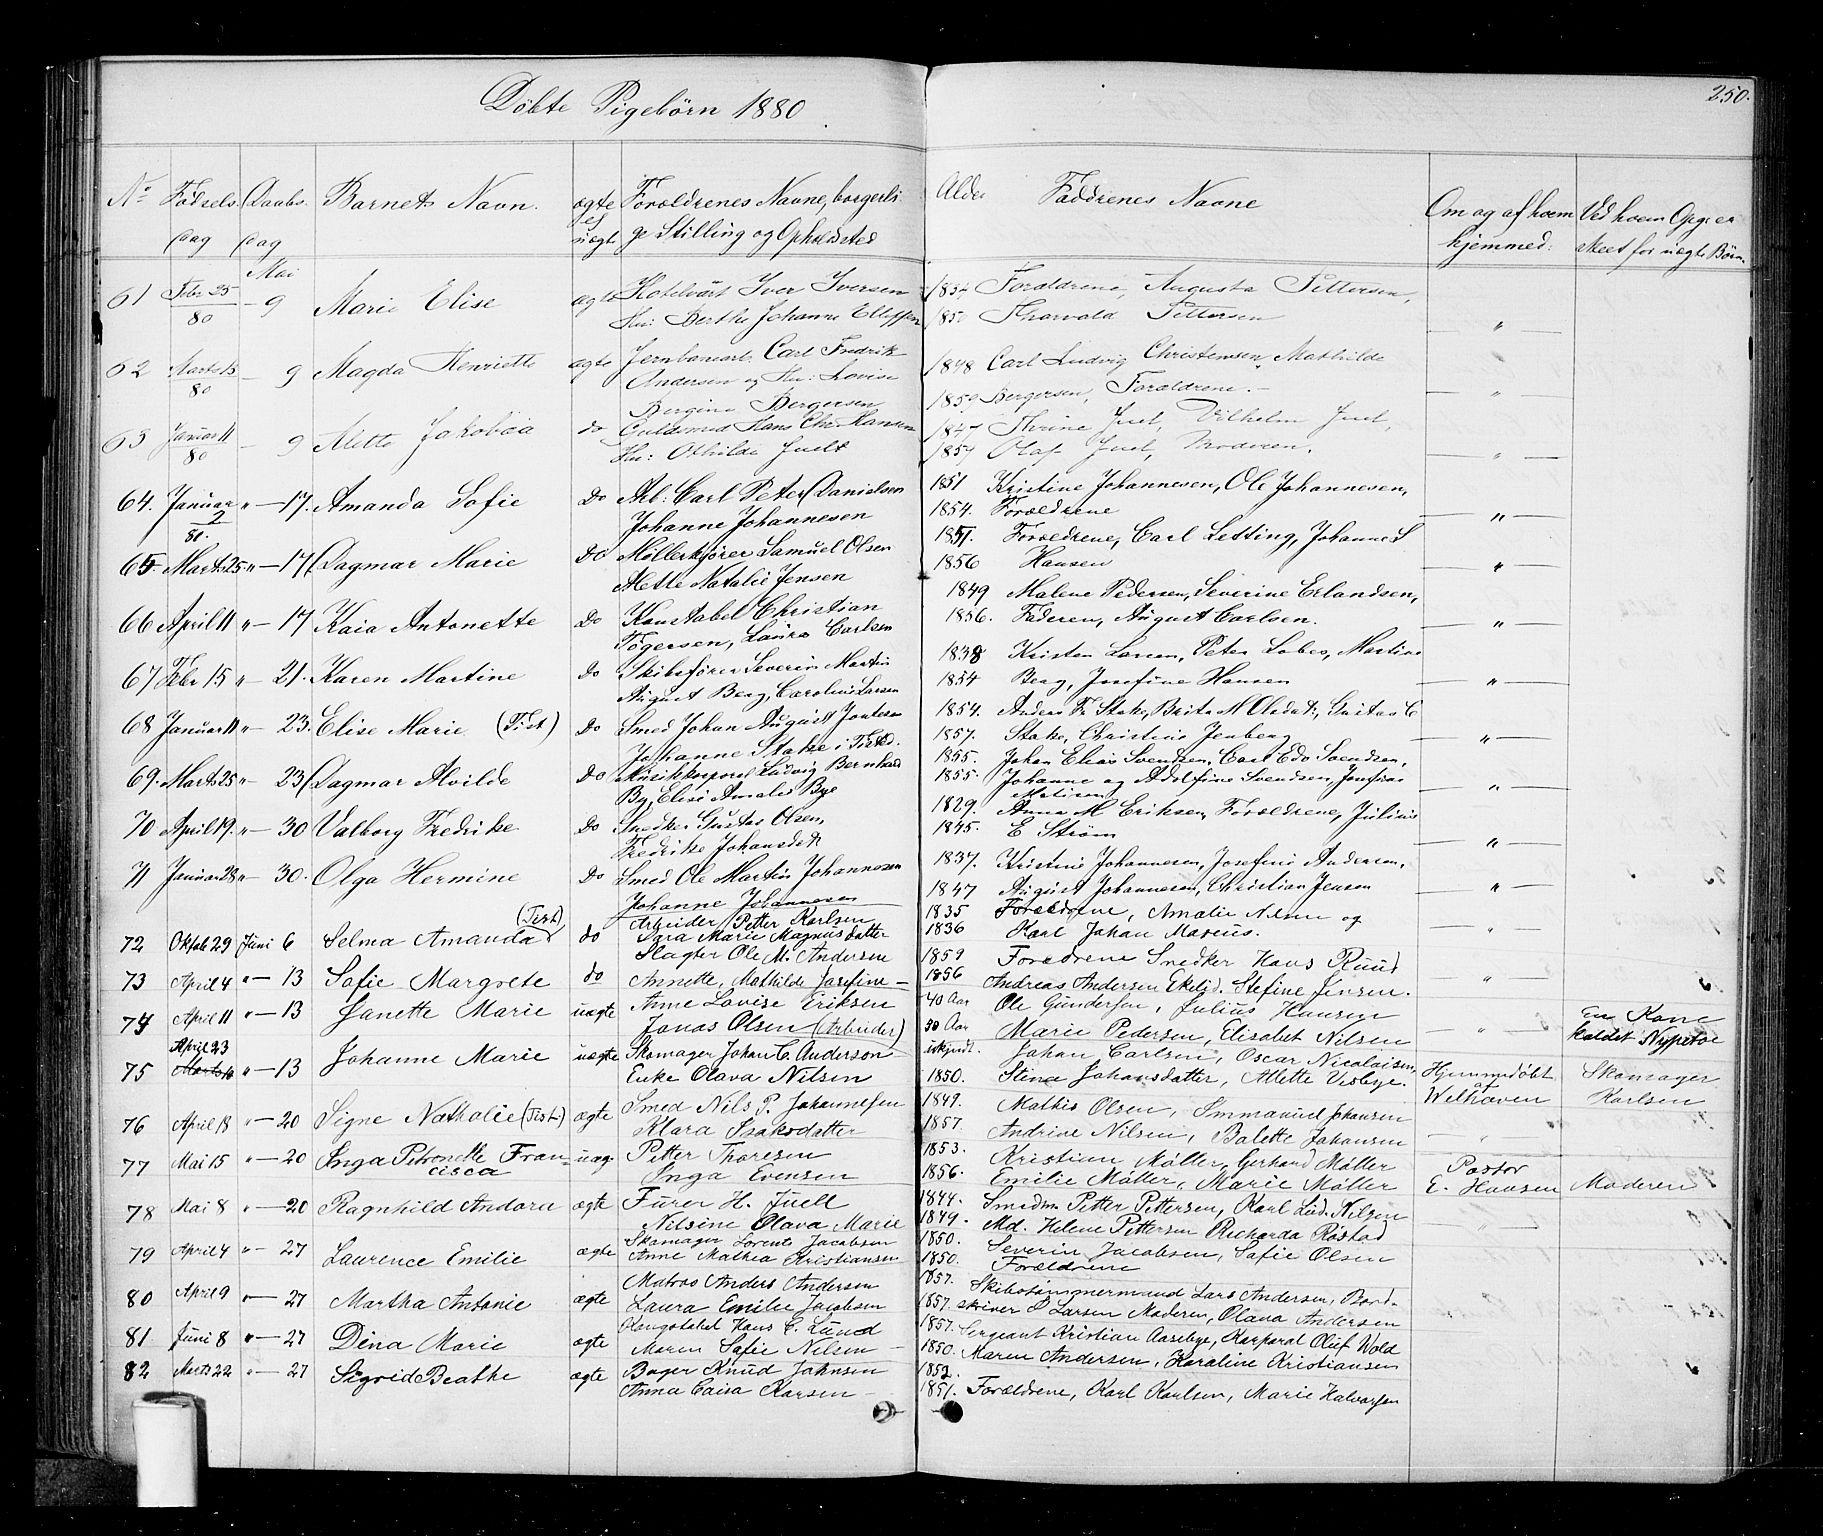 250.
Döbte Pigebörn 1880
No Fødsels Daabs Barnets Navn. ægte Forældrenes Navne, borgerli Alder Faddrenes Navne Om og af hvem Ved hvem Opg: er
dag dag ej uægt ge Stilling og Opholdsted hjemmed: skeet for uægte Børn.
Mai
61 Febr 25/80 - 9 Marie Elise ægte Hotelvärt Iver Iversen 1854 Forældrene, Augusta Pettersen,
Hu: Berthe Johanne Ellefsen 1850 Thorvald Pettersen — " —
62 Marts 13/80 - 9 Magda Henriette ægte Jernbanearb. Carl Fredrik 1848 Carl Ludvig Christensen, Mathilde
Andersen og Hu: Lovise 1859 Bergersen, Forældrene. — " —
Bergine Bergersen
63 Januar 11/80 - 9 Alette Jakobea do Guldsmed Hans Chr. Hansen 1847 Thrine Juel, Vilhelm Juel,
Hu: Othilde Juell 1857 Olaf Juel, Moderen. — " —
64. Januar 2/80. " — 17. Amanda Sofie Do Arb: Carl Peter Danielsen 1851 Kristine Johannesen, Ole Johannesen,
Johanne Johannesen 1854. Forældrene — " —
65. Marts 25 " — 17 Dagmar Marie Do Møllerkjörer Samuel Olsen 1851. Forældrene, Carl Setting, Johanne S
Mette Natalie Jensen 1856 Hansen — " —
66 April 11 " — 17 Kaia Antonette Do Konstabel Christian 1849 Malene Pedersen, Severine Erlandsen,
Togersen, Laura Carlsen 1856. Faderen, August Carlsen. — " —
67 Febr 15 " — 21. Karen Martine Do Skibsfører Severin Martin 1838 Kristen Larsen, Peter Lobes, Martine
August Berg, Caroline Larsen 1854 Berg, Josefine Hansen — " —
68 Januar 11 " — 23. Elise Marie. (Tist) Do Smed Johan August Jontesen 1854. Anders Fr Stake, Brita M Olsdat., Gustav C
Johanne Stake i Tisted. 1857. Stake, Christine Jenberg — " —
69. Marts 25 " — 23 Dagmar Alvilde Do Musikkorporal Ludvig Bernhard 1855. Johan Elias Svendsen, Carl Edv Svendsen,
By, Elise Amalie Bye 1855. Johanne og Adolfine Svendsen, Josefine
Matisen — " —
70 April 19. " — 30 Valborg Fredrike Do Snedker Gustav Olsen, 1829. Anna M Eriksen, Forældrene, Julius
Fredrike Johansdtr 1845. E Ström — " —
71 Januar 28 " — 30. Olga Hermine Do Smed Ole Martin Johannesen 1837. Kristine Johannesen, Josefine Andersen,
Johanne Johannesen 1847 August Johannesen, Christian Jensen — " —
72 Oktob 29 Juni 6 Selma Amanda (Tist.) do Arbeider Petter Karlsen 1835 Forældrene, Amalie Nilsen og
Sara Marie Magnusdatter 1836 Karl Johan Marcus. "
73 April 4 " — 13 Sofie Margrete do Slagter Ole M. Andersen 1859 Forældrene Snedker Hans Ruud
Annette, Mathilde Josefine — 1856 Andreas Andersen Ekelid. Stefine Jensen. "
74 April 11 " — 13 Janette Marie uægte Anne Lovise Eriksen 40 Aar Ole Gundersen, Julius Hansen En Kone
Jonas Olsen (Arbeider) 30 Aar Marie Pedersen, Elisabet Nilsen " kaldet Nypetoe
75 April 23 Marts 10 " — 13 Johanne Marie uægte Skomager Johan C. Anderson ubkjendt. Johan Carlsen, Oscar Nicolaisen, Hjemmedöbt Skomager
Enke Olava Nilsen 1850. Stina Johansdatter, Alette Visbye. af Welhaven Karlsen
76 April 18 " — 20 Signe Nathalie (Tist.) ægte Smed Nils P. Johannesen 1849. Mathis Olsen, Immanuel Johansen
Klara Isaksdatter 1857. Andrine Nilsen, Balette Johansen — " —
77 Mai 15 " — 20 Inga Petronelle Fran- uæg. Petter Thoresen 1853. Kristian Møller, Gerhard Møller Pastor
cisca Inga Evensen 1856. Emilie Møller, Marie Møller E. Hansen Moderen
78 Mai 8 " — 20 Ragnhild Andora ægte Furer H. Juell 1844. Smedm. Petter Pettersen, Karl Lud. Nilsen
Nilsine Olava Marie 1849. Md. Helene Pettersen Richarda Røstad — " —
79 April 4 " — 27 Laurence Emilie ægte Skomager Lorents Jacobsen 1850. Severin Jacobsen, Sofie Olsen
Anne Mathea Kristiansen 1850. Forældrene
80 April 9 " — 27 Martha Antonie ægte Matros Anders Andersen 1857. Skibstömmermand Lars Andersen, Bord-
Laura Emilie Jacobsen 1857. skriver O Larsen Moderen, Olava Andersen
81. Juni 8 " — 27 Dina Marie ægte Konstabel Hans C. Lund 1857. Sergeant Kristian Aasebye, Korporal Oluf Wold
Maren Sofie Nilsen — 1850. Maren Andersen, Karaline Kristiansen
82 Marts 22 " — 27 Sigrid Beathe ægte Bager Knud Johnsen 1852.
Anna Caisa Karsen — 1851. Forældrene, Karl Karlsen, Marie Halvorsen